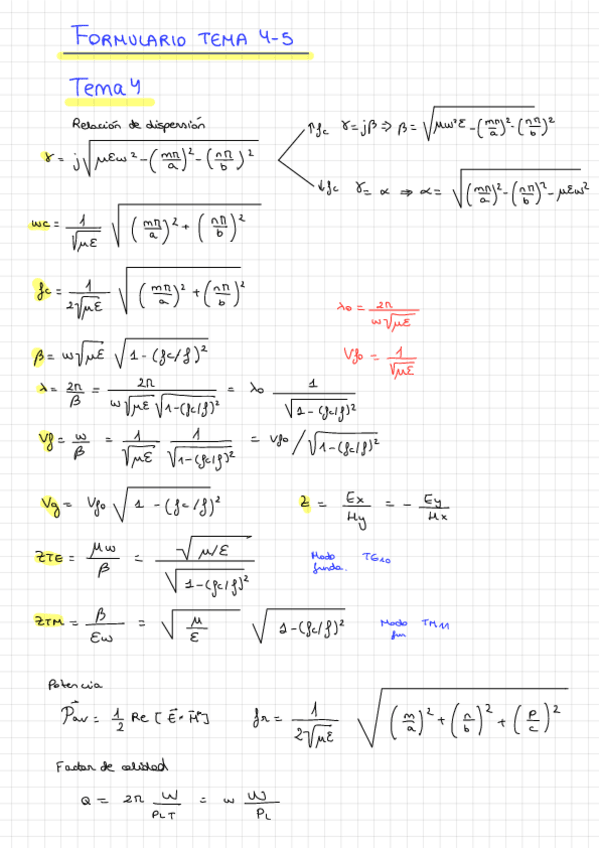 FORMULARIO TEMA 4-5
Tema 4
Relación de dispersión
γ = j√(μεω² - (mπ/a)² - (nπ/b)²)
↑fc γ = jβ ⇒ β = √(μω²ε - (mπ/a)² - (nπ/b)²)
↓fc γ = α ⇒ α = √((mπ/a)² - (nπ/b)² - μεω²)
wc = 1/√με √((mπ/a)² + (nπ/b)²)
fc = 1/2√με √((mπ/a)² + (nπ/b)²)
λo = 2π/ω√με
β = ω√με √(1 - (fc/f)²)
Vfo = 1/√με
λ = 2π/β = 2π/ω√με √(1-(fc/f)²) = λo 1/√(1-(fc/f)²)
Vf = ω/β = 1/√με 1/√(1-(fc/f)²) = Vfo/√(1-(fc/f)²)
Vg = Vfo √(1 - (fc/f)²)
Z = Ex/Hy = - Ey/Hx
ZTE = μω/β = √μ/ε / √(1-(fc/f)²)
Modo funda. TE10
ZTM = β/εω = √(μ/ε) √(1-(fc/f)²)
Modo fun TM11
Potencia
Pav = 1/2 Re [E · H*]
fr = 1/2√με √((m/a)² + (n/b)² + (p/c)²)
Factor de calidad
Q = 2π W/PLT = ω W/PL